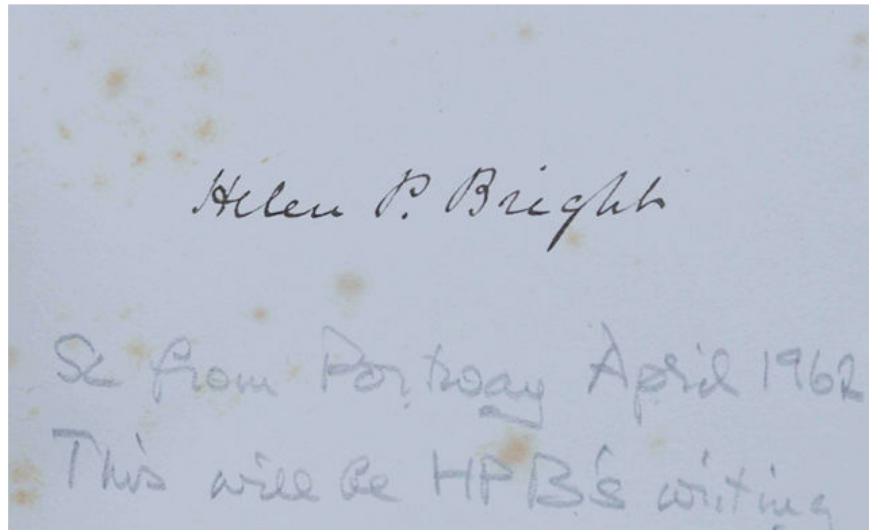 Helen P. Bright
from Portway April 1962
This will be HPB's writing